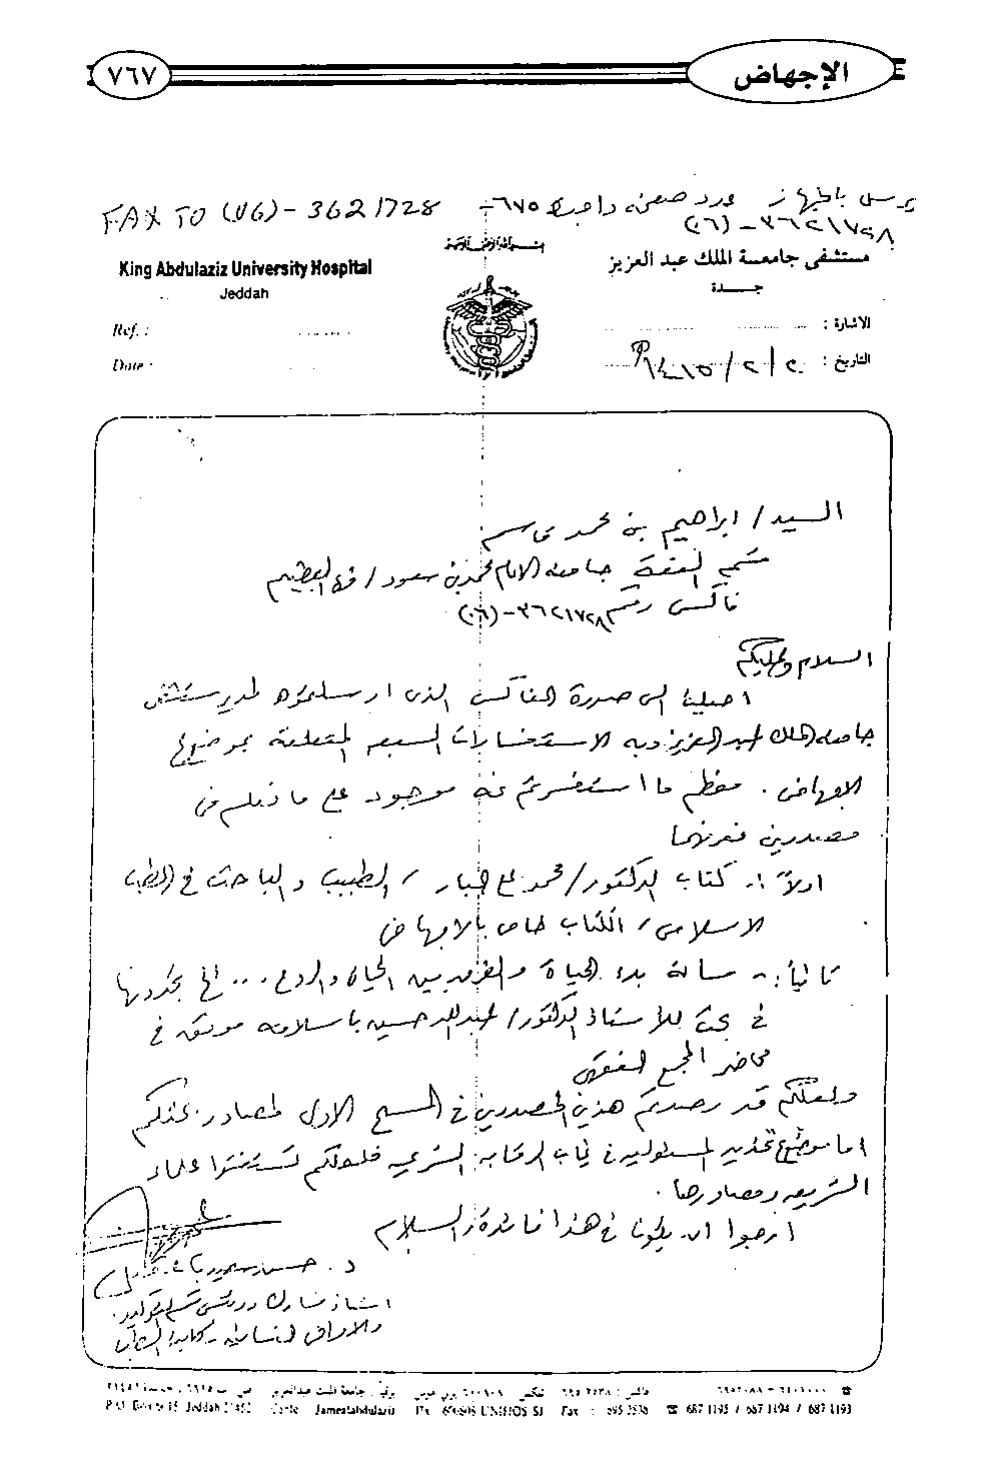 الإجهاض
٧٦٧
يرسل بالجهاز ورد صفحة واحدة ٦٧٥-
FAX TO (06) - 3621728
٣٦٢١٧٢٨ - (٠٦)
King Abdulaziz University Hospital
Jeddah
Ref. :
Date :
مستشفى جامعة الملك عبد العزيز
جـــدة
الاشارة :
التاريخ : ٢٠/٢/١٤١٥
السيد / ابراهيم بن محمد قاسم
قسم الفقه جامعة الامام محمد بن سعود / فرع القصيم
فاكس رقم ٣٦٢١٧٢٨ - (٠٦)
السلام وعليكم
احيلنا الى صورة الفاكس الذى ارسلتموه لمدير مستشفى
جامعة الملك عبد العزيز وبه الاستفسارات السبعه المتعلقة بموضوع
الاجهاض . معظم ما استفسرتم عنه موجود على ما نعلم فى
مصدرين معرفتهما
اولاً :- كتاب الدكتور / محمد على البار / الطبيب والباحث في الطب
الاسلامى / الكتاب خاص بالاجهاض
ثانياً :- مسألة بدء الحياة والفرق بين الحياة والروح ... الخ تجدونها
في بحث للأستاذ الدكتور / عبدالله حسين باسلامه موثق في
محاضر المجمع الفقهى
ولعلكم قد رصدتم هذين المصدرين في المسح الاول لمصادر بحثكم
اما موضوع تحديد المسئوليه في غياب الرقابه الشرعيه فلعلكم تستفتوا علماء
الشريعه ومصادرها .
ارجوا ان يكون في هذا فائدة والسلام
د . حسن
استاذ مشارك ورئيس قسم التوليد
والامراض النسائيه - كلية الطب
P.O. Box Jeddah 21452 Cable Jameatabdulaziz Tlx UNIHOS SJ Fax : ☎ 687 1195 / 687 1194 / 687 1193